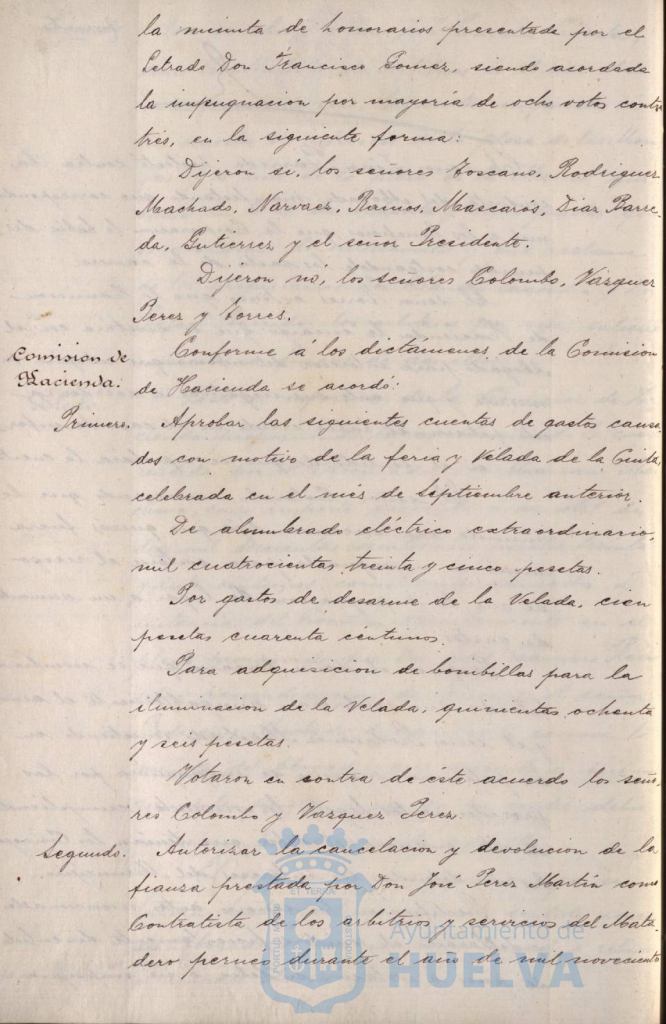 la minuta de honorarios presentada por el
Letrado Don Francisco Gomez, siendo acordada
la impugnacion por mayoría de ocho votos contra
tres, en la siguiente forma:
Dijeron sí, los señores Toscano, Rodriguez
Machado, Narvaez, Ramos, Mascarós, Diaz Barre
da, Gutierrez y el señor Presidente.
Dijeron nó, los señores Colombo, Vázquez
Perez y Torres.
Comision de
Hacienda:
Conforme á los dictámenes de la Comision
de Hacienda se acordó:
Primero. Aprobar las siguientes cuentas de gastos causa
dos con motivo de la feria y Velada de la Cinta,
celebrada en el més de Septiembre anterior.
De alumbrado eléctrico extraordinario,
mil cuatrocientas treinta y cinco pesetas.
Por gastos de desarme de la Velada, cien
pesetas cuarenta céntimos.
Para adquisicion de bombillas para la
iluminacion de la Velada, quinientas ochenta
y seis pesetas.
Votaron en contra de éste acuerdo los seño
res Colombo y Vazquez Perez.
Segundo. Autorizar la cancelacion y devolucion de la
fianza prestada por Don José Perez Martín como
Contratista de los arbitrios y servicios del Mata
dero períneo durante el año de mil novecientos
Ayuntamiento de
HUELVA